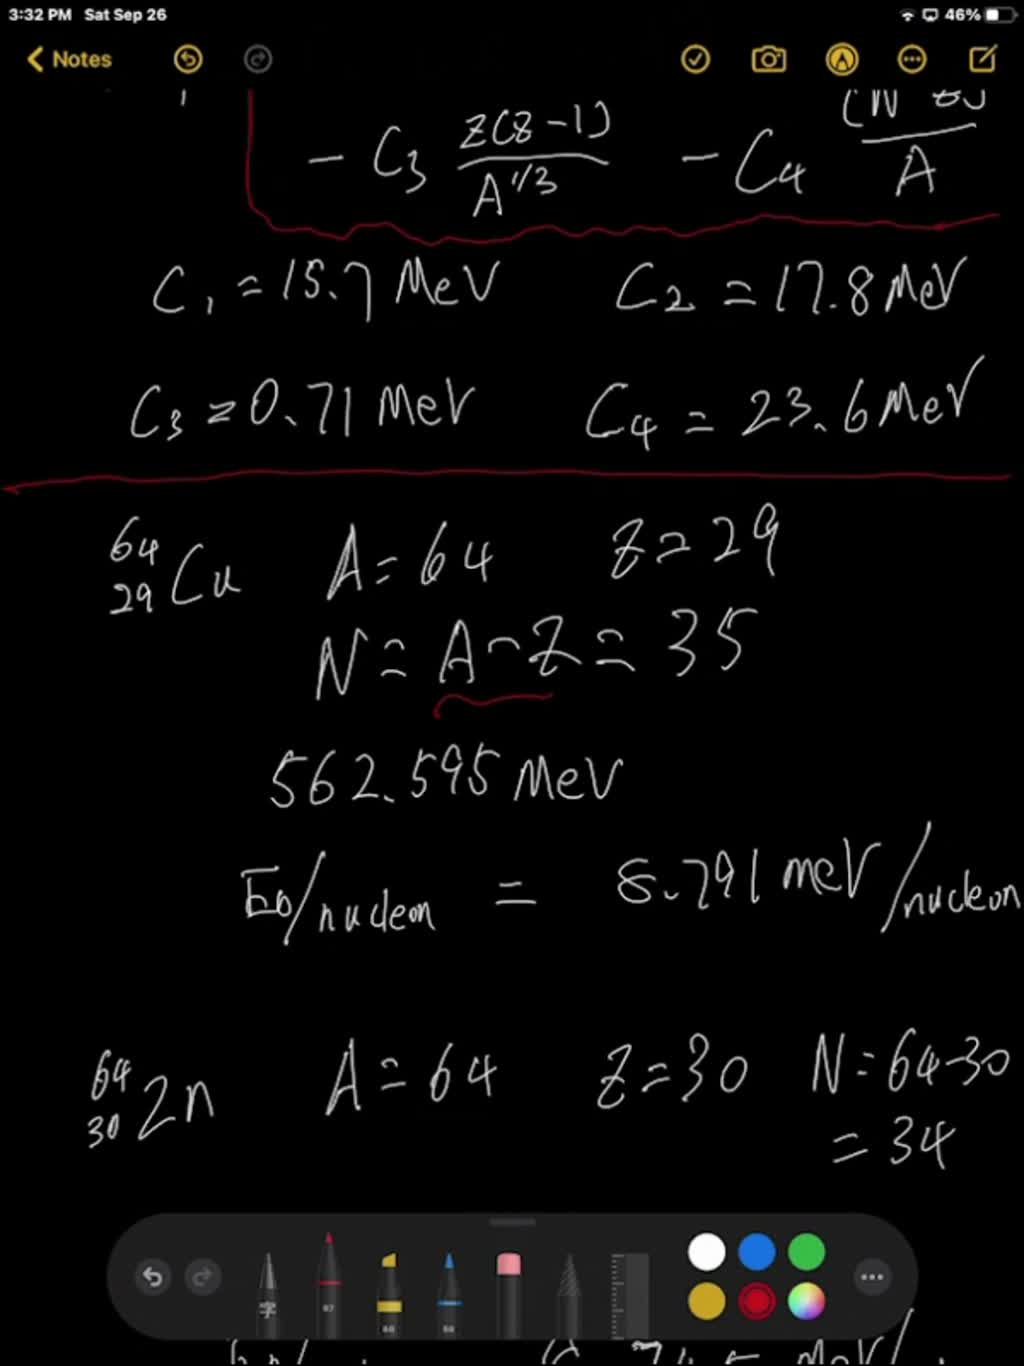 3:32 PM Sat Sep 26 46%
Notes
- C₃ Z(Z-1)/A^1/3 - C₄ /A
C₁ = 15.7 MeV C₂ = 17.8 MeV
C₃ = 0.71 MeV C₄ = 23.6 MeV
⁶⁴₂₉Cu A = 64 Z = 29
N = A - Z = 35
562.595 MeV
Eb/nucleon = 8.791 MeV/nucleon
⁶⁴₃₀Zn A = 64 Z = 30 N = 64-30
= 34